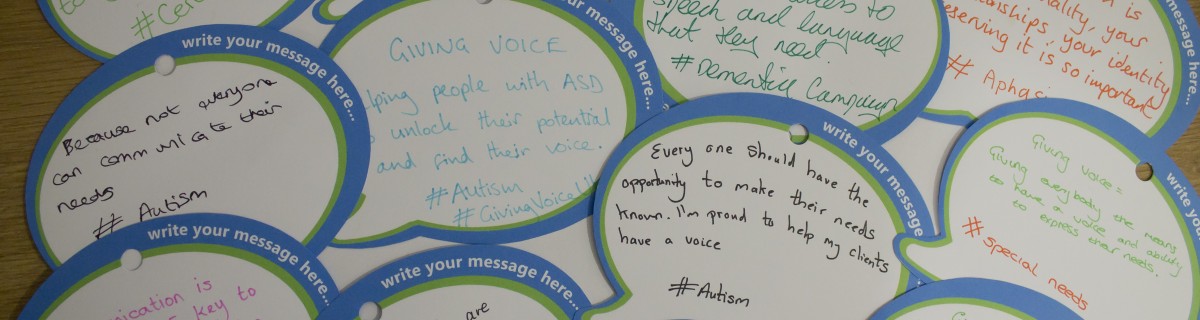 #Cer
write your message here...
Because not everyone
can communicate their
needs
# Autism
write your message here...
GIVING VOICE
lping people with ASD
unlock their potential
and find their voice.
#Autism
#GivingVoice
to
speech and language
that they need.
#Dementia Campaign
is
ality, your
onships, your identity
serving it is so important
# Aphasi
write your message here...
Every one should have the
opportunity to make their needs
known. I'm proud to help my clients
have a voice
#Autism
write you
Giving voice =
Giving everybody the means
to have a voice and ability
to express their needs.
# special needs
write your message here...
nication is
key to
write your message here...
are